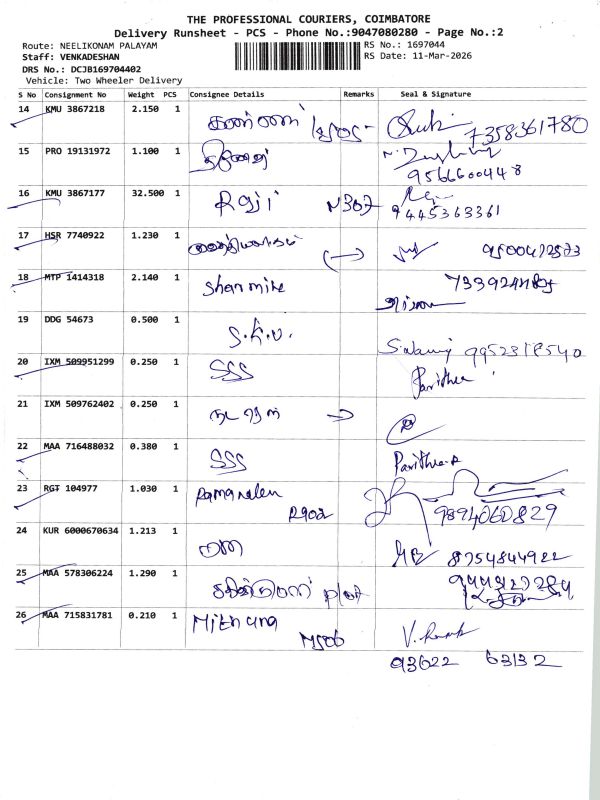 THE PROFESSIONAL COURIERS, COIMBATORE
Delivery Runsheet - PCS - Phone No.:9047080280 - Page No.:2
Route: NEELIKONAM PALAYAM RS No.: 1697044
Staff: VENKADESHAN RS Date: 11-Mar-2026
DRS No.: DCJB169704402
Vehicle: Two Wheeler Delivery
S No Consignment No Weight PCS Consignee Details Remarks Seal & Signature
14 KMU 3867218 2.150 1 7358361780
15 PRO 19131972 1.100 1
9566600448
16 KMU 3867177 32.500 1 Raji N307
9445363361
17 HSR 7740922 1.230 1
18 MTP 1414318 2.140 1 Sharmike
19 DDG 54673 0.500 1 S.K.U.
9952318540
20 IXM 509951299 0.250 1 SSS Parithee
21 IXM 509762402 0.250 1
22 MAA 716488032 0.380 1 SSS Parithee.R
23 RGT 104977 1.030 1 Ramanalen
R902 9894060829
24 KUR 6000670634 1.213 1 8754844922
25 MAA 578306224 1.290 1
26 MAA 715831781 0.210 1 Mithuna
M506
93622 63132